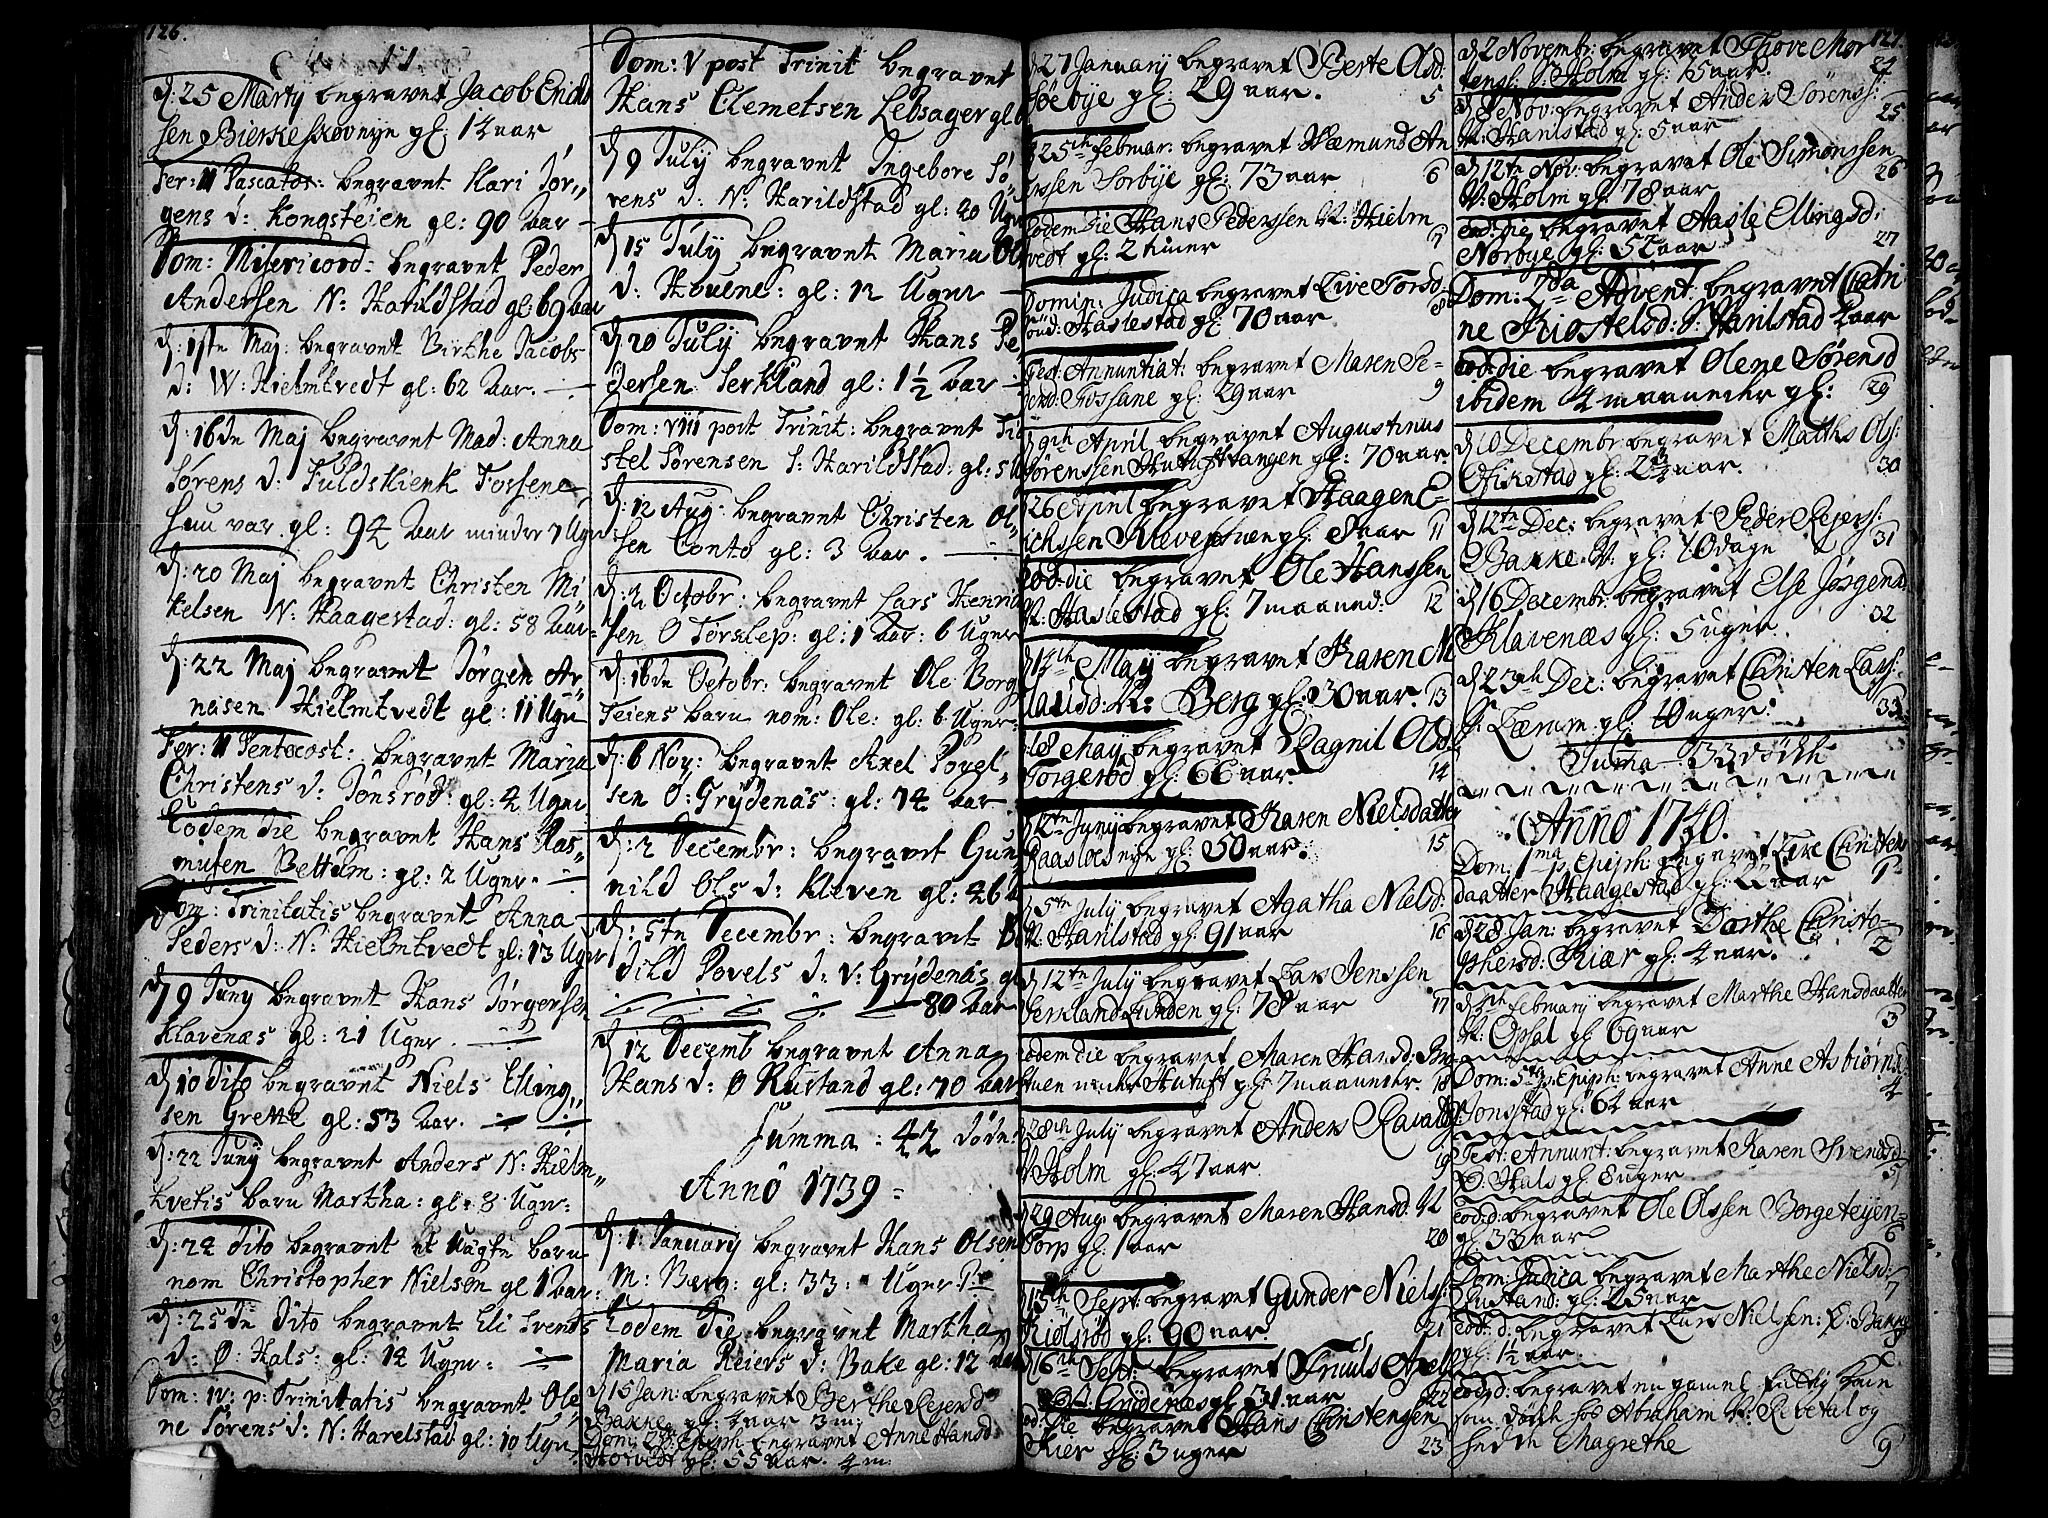 126.
d: 25 Marty begravet Jacob Ends
sen Bierkeskovnye gl: 14 aar
Fer: II Pascatos: begravet Kari Jør„
gens d: Kongsteien gl: 90 Aar
Dom: Misericord: begravet Peder
Andersen N: Harildstad gl: 69 Aar
d: 1ste Maj: begravet Birthe Jacobs
d: W: Hielmtvedt gl: 62 Aar.
d: 16de Maj begravet Mad: Anna
Sørens d: Fuldskienk Fossene
hun var gl: 94 Aar minder 7 Ugr
d: 20 Maj begravet Christen Mi
kelsen N: Haagestad: gl: 58 Aar
d: 22 Maj begravet Jørgen Ar
neisen Hielmtvedt gl: 11 Ugr
Fer: II Pentecost: begravet Maria
Christens d: Jonsrød: gl: 4 Ugr
Eodem die begravet Hans Ras„
musen Bettum: gl: 2 Uger.
Dom: Trinitatis begravet Anna
Peders d: N: Hielmtvedt gl: 13 Uger
d 9 Juny begravet Hans Jørgensen
Klavenæs gl: 21 Uger.
d 10 dito begravet Niels Elling„
sen Grette gl: 53 Aar.
d: 22 Juny begravet Anders N: Hielm„
tvetis barn Martha: gl: 8 Uger
d: 24 dito begravet et Uægte barn
nom Christopher Nielsen gl 1 Aar
d: 25de dito begravet Eli Svends
d: Ø: Hals: gl: 14 Uger:
Dom: IV: p: Trinitatis begravet Ole
ne Sørens d: N: Harelstad gl: 10 Ugr
Dom: V post Trinit begravet
Hans Clemetsen Lebsager gl
d 9 July begravet Ingebore Sö
rens d: N: Harildstad gl: 20 Ugr
d 15 July begravet Maria Ol
d: Houene: gl: 12 Uger
d 20 July begravet Hans Pe
dersen Serkland gl: 1½ Aar
Dom: VIII post Trinit: begravet Ti
stel Sørensen S: Harildstad: gl: 5
d: 12 Aug: begravet Christen Ol„
sen Conto gl: 3 Aar.
d: 2 Octobr: begravet Lars Henrid
sen Ø Tørslep: gl: 1 Aar: 6 Uger
d: 16de Octobr: begravet Ole Borg
Teiens barn nom: Ole: gl: 6 Uger
d: 6 Nov: begravet Axel Povel„
sen Ø: Grydenäs: gl: 74 Aar
d: 2 Decembr: begravet Gun
nild Ols d: Kleven gl: 46
d: 5te Decembr: begravet B
dild Povels d: V: Grydenäs gl
80 Aar
d 12 Decemb begravet Anna
Hans d: Ø Rustand gl: 70 Aar
Summa: 42 døde:
Anno 1739
d: 1: January begravet Hans Olsen
M: Berg: gl: 33: Uger
Eodem die begravet Martha
Maria Reiers d: Bake gl: 12
d 15 Jan: begravet Berthe Rejersd
Bakke gl: 4 aar 3 m:
Dom: 2da Epiph: begravet Anne Hansd:
gl: 55 aar. 4 m:
d 27 January begravet Berte Olsd
Søebye gl: 29 aar. 5
d 25th Februar: begravet Hæmund An
erssen Sørbye gl: 73 aar 6
Eodem die Hans Pederssen N: Hielm
tvedt gl: 2 timer 7
Domin: Judica begravet Live Torsd:
Haslestad gl: 70 aar 8
Fest: Annuntiat: begravet Maren Pe=
dersd: Fossane gl: 29 aar 9
d 9th April begravet Augustinus
Sørenssen Hutuftvangen gl: 70 aar
d 26 April begravet Haagen E=
richssen Klevestuen gl: 8 aar 11
eod: die begravet Ole Hanssen
N: Haslestad gl: 7 maaned: 12
d 14th May begravet Karen M
Berg gl: 30 aar. 13
d 18 May begravet Ragnil Olsd
Torgersød gl: 66 aar 14
d 12te Juny begravet Karen Nielsdatter
Raasløsnye gl: 50 aar. 15
d 5te July begravet Agatha Nielsd:
N: Harilstad gl: 91 aar 16
d 12te July begravet Lars Jenssen
Serkland Lunden gl: 78 aar 17
eodem die begravet Maren Hansd: Bro
stuen under Hutuft gl: 7 maaneder. 18
d 28th July begravet Anders
Holm gl: 47 aar 19
d 29 Aug: begravet Maren Hansd: N
Torp gl: 1 aar 20
d 13th Sept: begravet Gunder Nielss:
Kielsrød gl: 90 aar 21
d 16th Sept: begravet Truuls Axels
Grydenæs gl: 31 aar 22
eod: die begravet Hans Christensen
Kier gl: 3 uger 23
127.
d 2 Novembr: begravet Thove Mor
tens: Holm gl: 5 aar. 24
d 8 Nov: begravet Anders Sørenss:
N: Harilstad gl: 5 aar 25
d 12te Nov: begravet Ole Simonssen
N: Holm gl: 78 aar 26
eod: die begravet Aasle Ellingsd:
Norbye gl: 52 aar 27
Dom: 2da Advent: begravet Cathri
ne Kiostelsd: S: Harilstad 4 aar
eod: die begravet Olene Sørensd
ibidem 4 maaneder gl: 29
d 10 Decembr: begravet Matths Ols:
Ofikstad gl: 2¾ aar. 30
d 12te Dec: begravet Peder Rejers:
Bakke N: gl: 10 dage 31
d 16 Decembr: begravet Else Jørgensd
Klavenæs gl: 5 uger. 32
d 23th Dec: begravet Christen Lars:
Lærum gl: 10 uger: 33
Suma 33 dödde
Anno 1740.
Dom: 1ma p. Epiph: begravet Live Christens
daatter Haagestad gl: aar 1
d 28 Jan: begravet Dorthe Christo=
phersd: Kiær gl: 4 aar. 2
d 3th February begravet Marthe Hansdaatter
N: Opsal gl 69 aar 3
Dom: 5ta p. Epiph: begravet Anne Asbiørnsd
Jonstad gl: 64 aar 4
Fest: Annunt: begravet Karen Svendsd
Ø: Hals gl: 8 uger 5
eod: d: begravet Ole Olssen Borgeteyen=
gl: 33 aar 6
Dom: Judica begravet Marthe Nielsd:
Rustand: gl: 25 aar 7
eod: d: begravet Lars Nielsen: Ø: Bakke
gl: 1½ aar 8
eod: d: begravet en gamel fattig Kone
som dödde hos Abraham N: Revetal og
hedde Magrethe 9